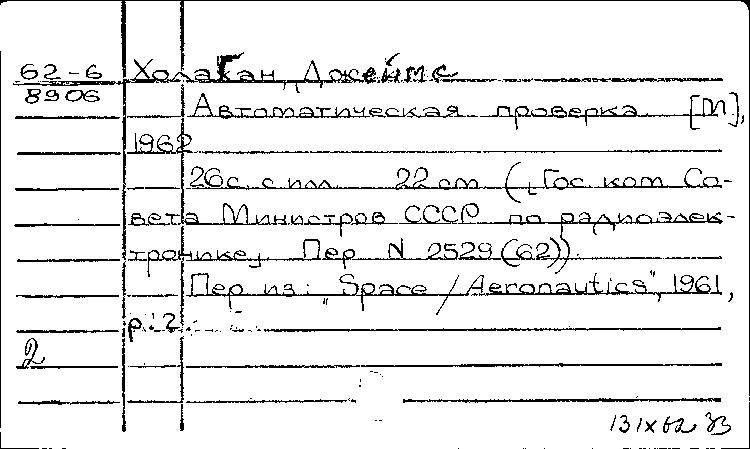 62-6 Холаган, Джеймс
8906
Автоматическая проверка [М],
1962
26с. с илл. 22 см (Гос. ком. Со-
вета Министров СССР по радиоэлек-
тронике, Пер N 2529(62)).
Пер из: "Space/Aeronautics", 1961,
2
131X62